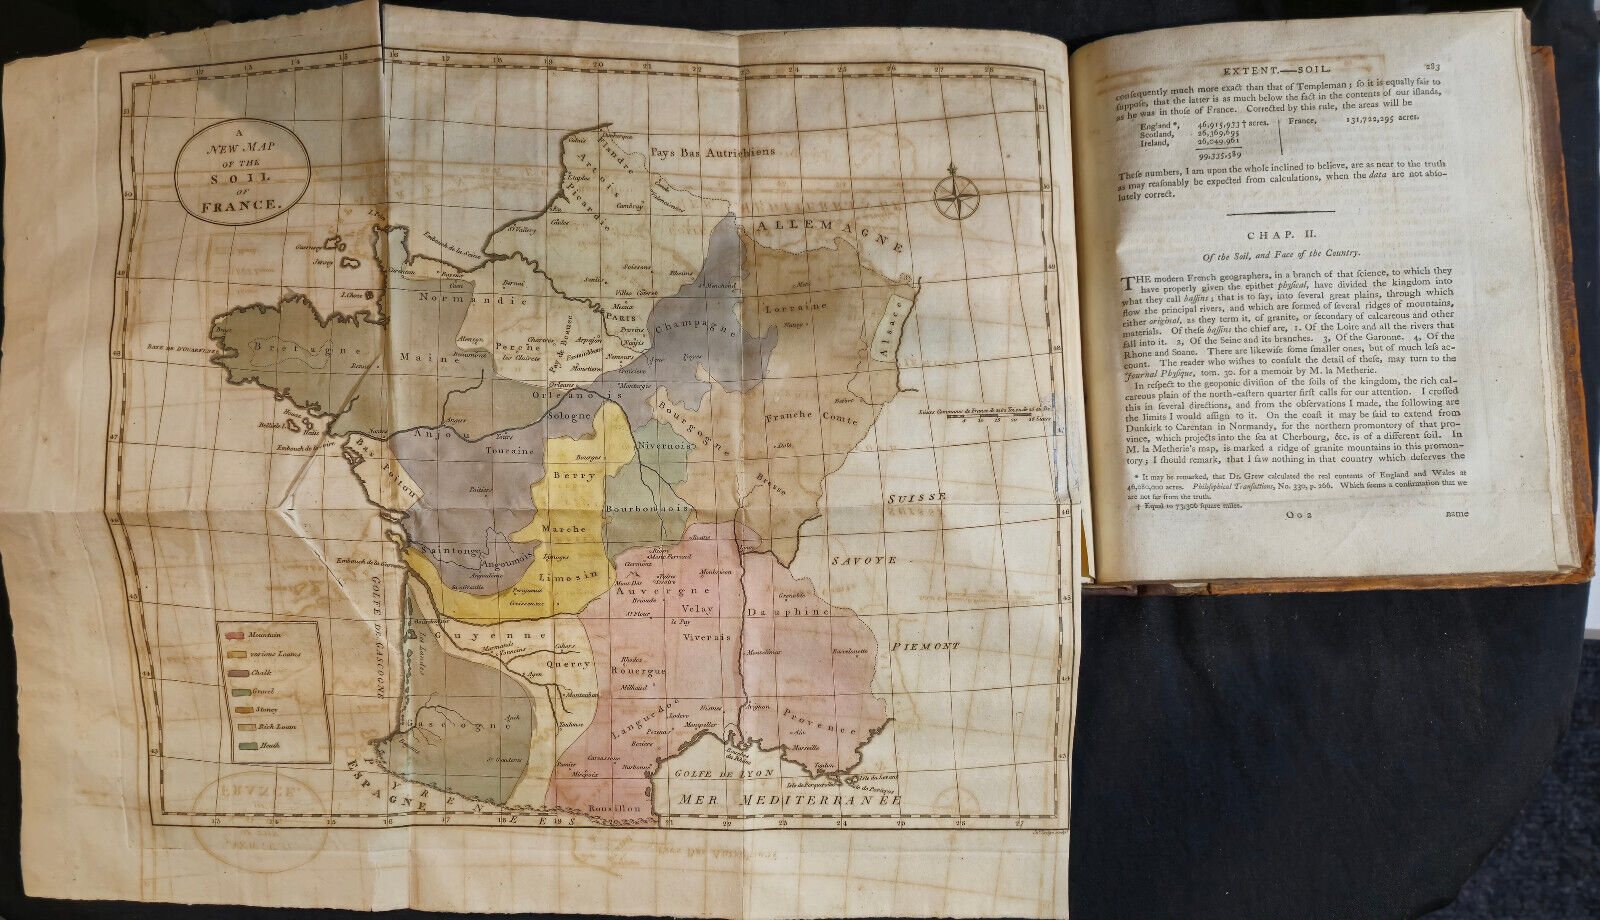 A
NEW MAP
OF THE
SOIL
OF
FRANCE.
Pays Bas Autrichiens
ALLEMAGNE
Flandre
Artois
Picardie
Dunkerque
Calais
Etaples
Cambray
Valenciennes
St Vallery
Guernsey
Jersey
Embouch de la Seine
Carentan
Caen
Normandie
Soissons
Senlis
Villes Coterets
Rheims
St Menehoud
Meaux
PARIS
Provins
Nangis
Nemours
Champagne
Troyes
Metz
Lorraine
Nancy
Alsace
Brest
BAYE DE D'OUARNENES
Bretagne
Rennes
Maine
Alenson
Beaumont
Perche
Chartres
Arpajon
Fontainbleau
Pays de Beauce
Orleans
Orleanois
Montargis
Sologne
Bourgogne
Franche Comte
Befort
Dole
Bresse
Nantes
Angers
Anjou
Tours
Touraine
Embouch de la Loire
Bas Poitou
Poitiers
Bourges
Berry
Nivernois
Bourbonnois
Marche
SUISSE
SAVOYE
PIEMONT
Saintonge
Angoumois
Angouleme
Limoges
Limosin
Perigueux
Embouch de la Garonne
GOLFE DE GASCOGNE
Roane
Riom
Clermont
Auvergne
Brioude
St Flour
Velay
le Puy
Viverais
Dauphine
Grenoble
Montelimar
Barcelonette
Guyenne
Les Landes
Quercy
Cahors
Agen
Montauban
Toulouse
Rhodez
Rouergue
Milhaud
Languedoc
Lodeve
Nismes
Montpellier
Pezenas
Beziers
Carcassonne
Narbonne
Mirepoix
Avignon
Provence
Aix
Marseille
Toulon
Gascogne
Auch
St Gaudens
Rousillon
GOLFE DE LYON
MER MEDITERRANÉE
ESPAGNE
PYRENEES
Mountain
various Loams
Chalk
Gravel
Stoney
Rich Loam
Heath
EXTENT.—SOIL. 283
consequently much more exact than that of Templeman; so it is equally fair to
suppose, that the latter is as much below the fact in the contents of our islands,
as he was in those of France. Corrected by this rule, the areas will be
England *, 46,915,933 † acres. France, 131,722,295 acres.
Scotland, 26,369,695
Ireland, 26,049,961
99,335,589
These numbers, I am upon the whole inclined to believe, are as near to the truth
as may reasonably be expected from calculations, when the data are not abso-
lutely correct.
CHAP. II.
Of the Soil, and Face of the Country.
THE modern French geographers, in a branch of that science, to which they
have properly given the epithet physical, have divided the kingdom into
what they call bassins; that is to say, into several great plains, through which
flow the principal rivers, and which are formed of several ridges of mountains,
either original, as they term it, of granite, or secondary of calcareous and other
materials. Of these bassins the chief are, 1. Of the Loire and all the rivers that
fall into it. 2, Of the Seine and its branches. 3, Of the Garonne. 4, Of the
Rhone and Soane. There are likewise some smaller ones, but of much less ac-
count. The reader who wishes to consult the detail of these, may turn to the
Journal Physique, tom. 30. for a memoir by M. la Metherie.
In respect to the geoponic division of the soils of the kingdom, the rich cal-
careous plain of the north-eastern quarter first calls for our attention. I crossed
this in several directions, and from the observations I made, the following are
the limits I would assign to it. On the coast it may be said to extend from
Dunkirk to Carentan in Normandy, for the northern promontory of that pro-
vince, which projects into the sea at Cherbourg, &c. is of a different soil. In
M. la Metherie's map, is marked a ridge of granite mountains in this promon-
tory; I should remark, that I saw nothing in that country which deserves the
* It may be remarked, that Dr. Grew calculated the real contents of England and Wales at
46,080,000 acres. Philosophical Transactions, No. 330, p. 266. Which seems a confirmation that we
are not far from the truth.
† Equal to 73,306 square miles.
O o 2 name